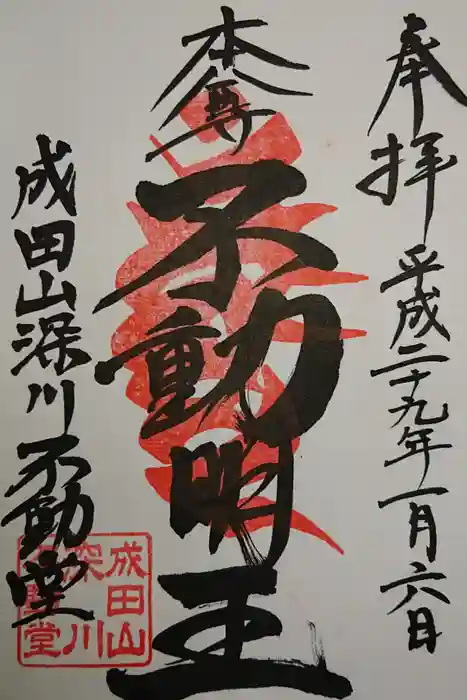 奉拝
平成二十九年一月六日
本尊
不動明王
成田山深川不動堂
成田山
深川
不動堂